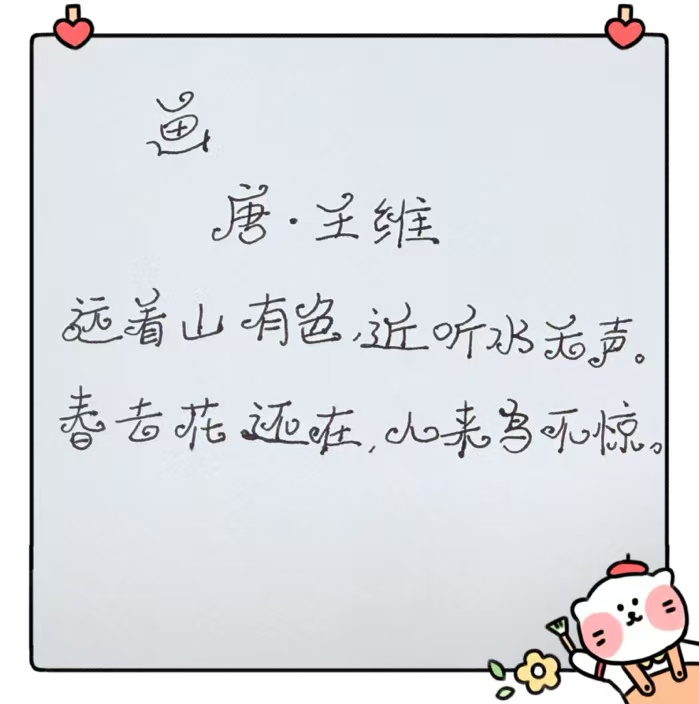 画
唐·王维
远看山有色,近听水无声。
春去花还在,人来鸟不惊。